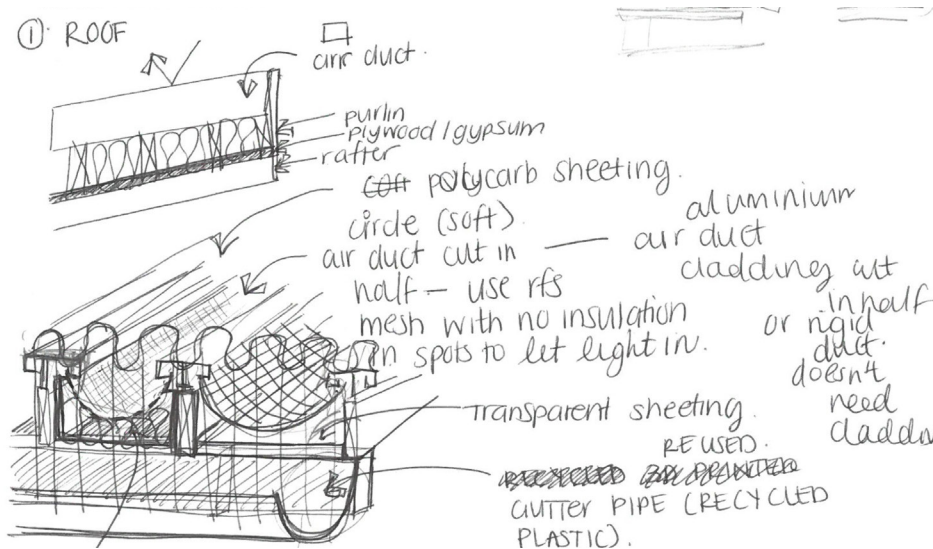 ① ROOF
air duct.
purlin
plywood/gypsum
rafter
polycarb sheeting.
circle (soft).
air duct cut in
half — use rfs
mesh with no insulation
in spots to let light in.
aluminium
air duct
cladding cut
in half
or rigid
duct.
doesn't
need
claddin
Transparent sheeting.
REUSED.
RECYCLED 3D PRINTED
GUTTER PIPE (RECYCLED
PLASTIC).